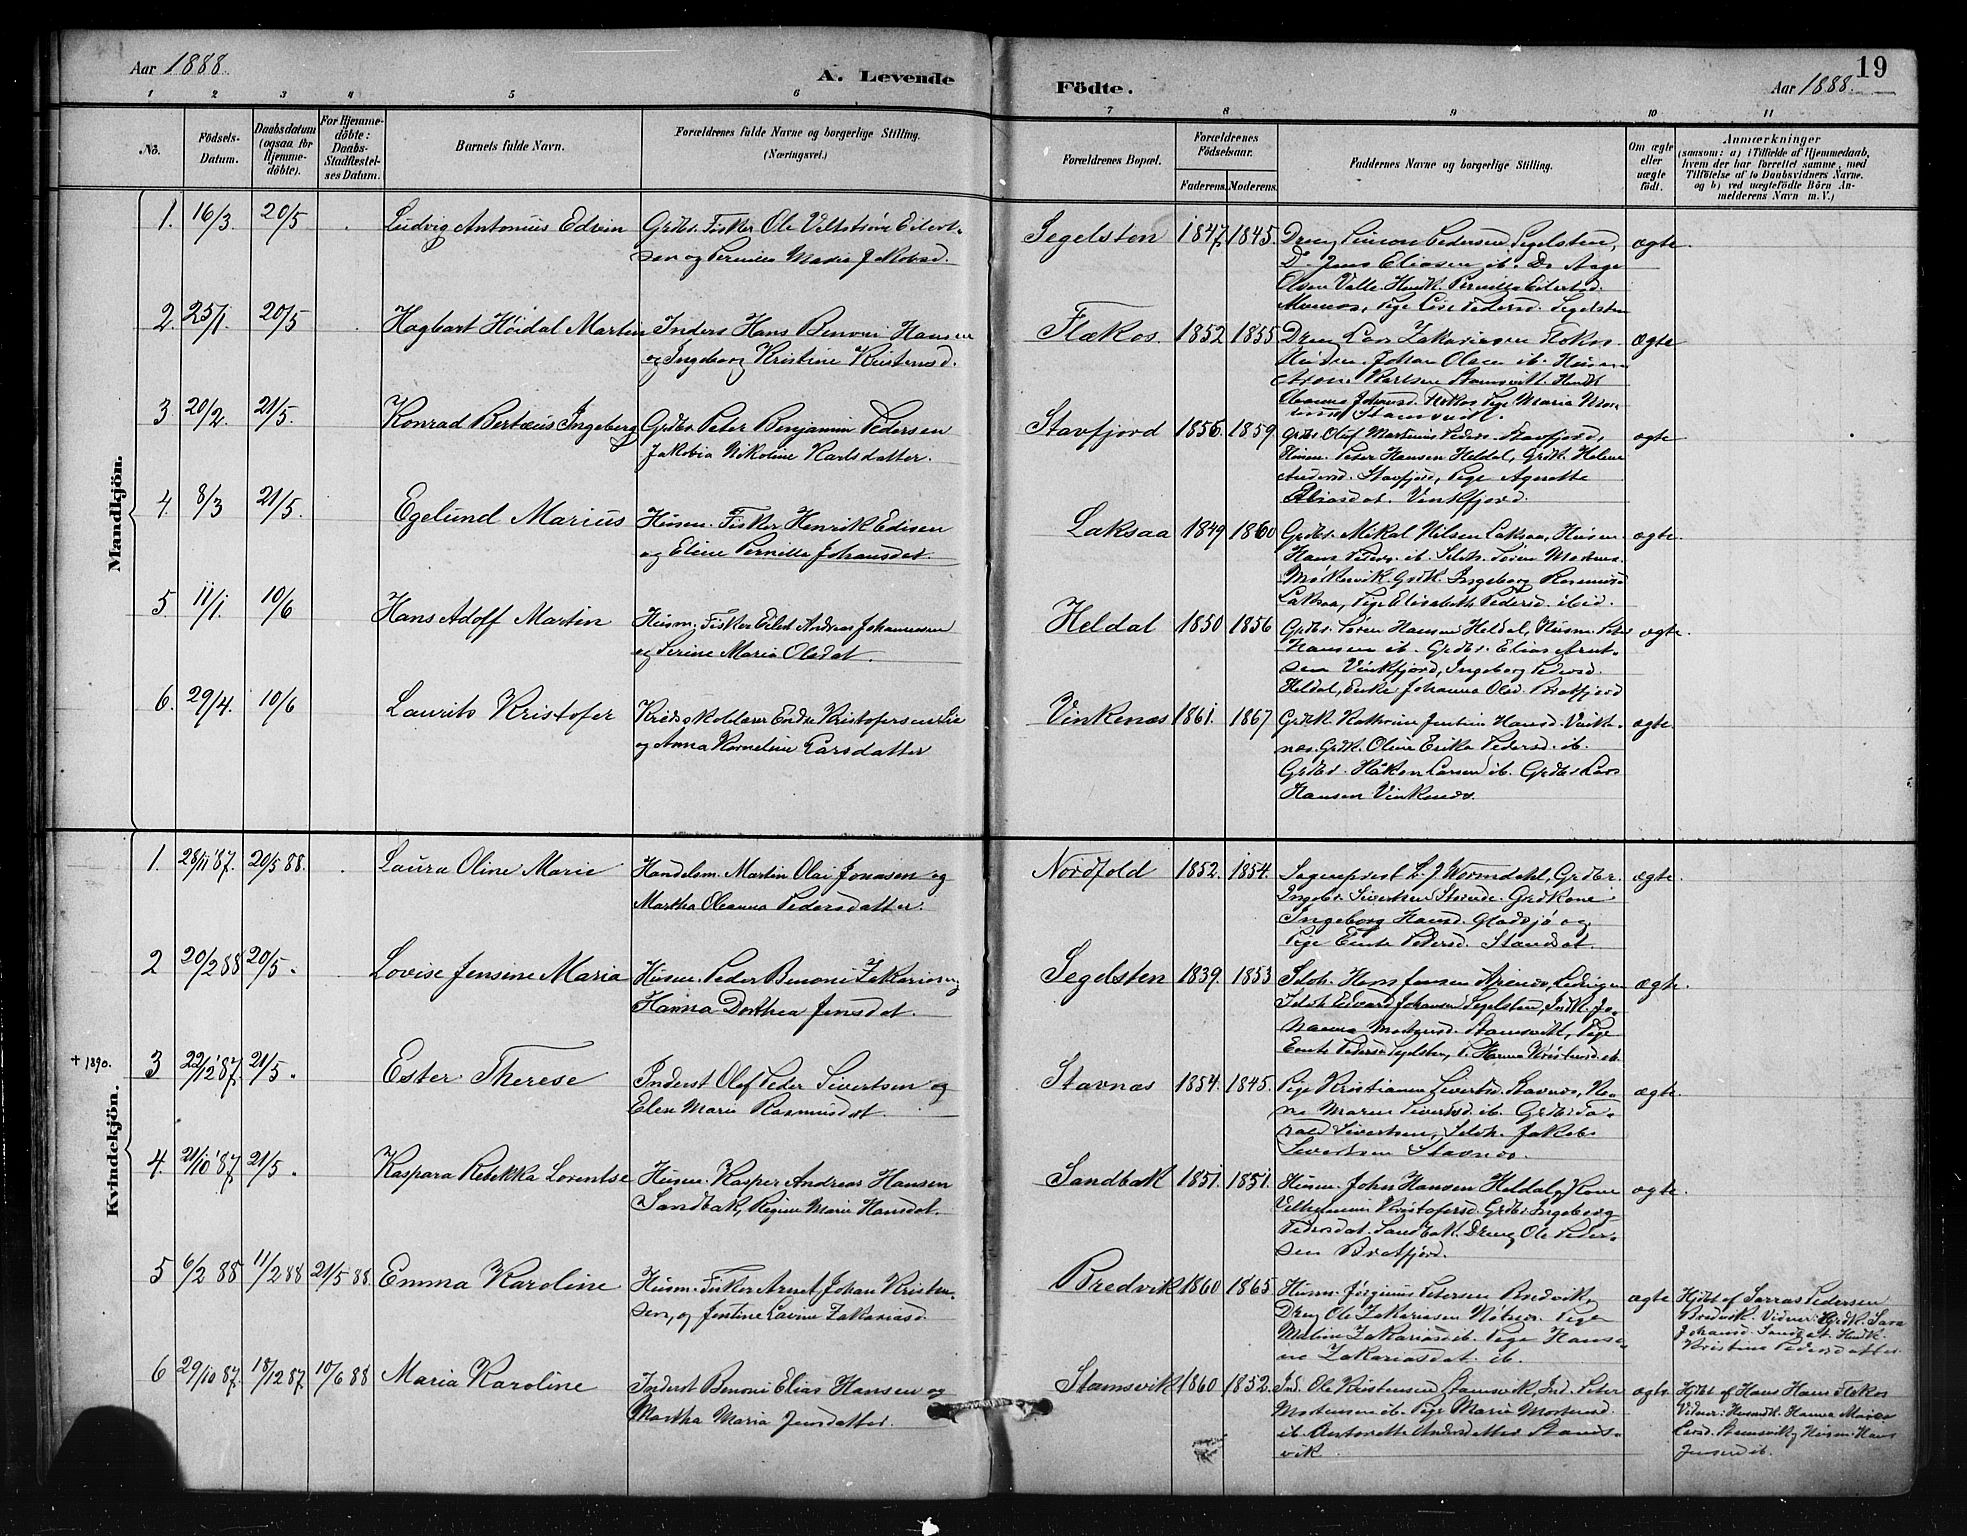 Aar 1888.
A. Levende
Födte.
Aar 1888.
19
1 2 3 4 5 6 7 8 9 10 11
No.
Födsels-
Datum.
Daabsdatum
(ogsaa for
Hjemme-
döbte).
For Hjemme-
döbte:
Daabs-
Stadfæstel-
ses Datum.
Barnets fulde Navn.
Forældrenes fulde Navne og borgerlige Stilling.
(Næringsvei.)
Forældrenes Bopæl.
Forældrenes
Födselsaar.
Faderens. Moderens.
Faddernes Navne og borgerlige Stilling.
Om ægte
eller
uægte
födt.
Anmærkninger
(saasom: a) i Tilfælde af Hjemmedaab,
hvem der har forrettet samme, med
Tilföielse af to Daabsvidners Navne,
og b) ved uægtefödte Börn An-
melderens Navn m. V.)
Mandkjön.
1. 16/3 20/5 Ludvig Antonius Edvin
Grdbr. Fisker Ole Eilert-
sen og Maria Jakobsd.
Segelsten 1847 1845.
Dreng Simon Pedersen Segelsten,
Do Jens Eliasen ib. Do Aage
Olsen Valle. Pernilla Eilertsd.
Pige Pedersd. Segelsten
ægte.
2. 25/1. 20/5 Hagbart Höidal Martin
Inders Hans Benoni Hansen
og Ingeborg Kristine Kristensd.
Flækos 1852 1855
Dreng Lars Zakariasen
Johan Olsen ib. Husm
Karlsen Stamsvik.
Johansd. Pige Maria Mor-
ægte
3 20/2. 21/5. Konrad Bertæus Ingeberg
Grdbr. Peter Benjamin Pedersen
Jakobia Nikoline Karlsdatter.
Stavfjord 1856. 1859.
Grdbr. Oluf Martinus Peders. Stavfjord,
Husm. Peter Hansen Heldal, Grdk. Helene
Andersd. Stavfjord, Pige Agnette
Eliasdat. Vinkfjord.
ægte
4. 8/3 21/5. Egelund Marius
Husm. Fisker Henrik Edisen
og Eline Pernille Johansdat
Laksaa 1849 1860
Grdbr. Mikal Nilsen Laksaa, Husm
Hans Peders. ib. Søren Mortens.
Mørkesvik. Grdk. Ingeborg Rasmusd
Laksaa, Pige Elisabeth Pedersd. ibid.
ægte.
5. 11/1. 10/6 Hans Adolf Martin
Husm. Fisker Eilert Andreas Johannessen
og Serine Maria Olsdat.
Heldal 1850 1856
Grdbr. Søren Hansen Heldal, Husm. Peter
Hansen ib. Grdbr. Elias Arnt-
sen Vinkfjord, Ingeborg Pedersd.
Heldal, Enke Johanna Olsd. Bratfjord
ægte.
6. 29/4. 10/6 Laurits Kristofer
Endre Kristofersen
og Anna Kornelia Larsdatter
Vinkenæs 1861. 1867
Grdk. Kathrine Jentine Hansd. Vinke-
næs. Grdk. Oline Erika Pedersd. ib.
Grdbr. Håkon Larsen ib. Grdbr. Lars
Hansen Vinkenæs.
ægte.
Kvindekjön.
1. 28/11 87. 20/5 88. Laura Oline Marie
Handelsm. Martin Olai Jonasen og
Martha Oleanna Pedersdatter.
Nordfold 1852. 1854.
Sogneprest L. J. Wormdahl, Grdbr.
Ingebr. Sivertsen Strinde. Grdkone
Ingeborg Hansd. Gladsjø og
Pige Pedersd.
ægte.
2 20/2 88 20/5. Lovise Jensine Maria
Husm. Peder Benoni Zakarias. og
Hanna Dorthea Jensdat.
Segelsten 1839. 1853
Hans Jensen Lødingen
Edvard Johansen Segelsten, Indk. Jo-
hanna Mortensd. Stamsvik, Pige
Pedersd Segelsten, P. Hanna Kristensd. ib.
ægte.
+ 1890.
3 22/12 87. 21/5. Ester Therese
Inderst Olef Peder Sivertsen og
Elen Marie Rasmusdat.
Stavnæs 1854. 1845.
Pige Kristianna Sivertsd. Stavnæs, Ko-
ne Maren Sivertsd. ib. Grdbr. To-
rald Sivertsen, Jakob
Sivertsen Stavnæs.
ægte.
4 21/10 87 21/5. Kaspara Rebekka Lorentse
Husm. Kasper Andreas Hansen
Sandbak, Regine Marie Hansdat.
Sandbak 1851. 1851.
Husm. John Hansen Heldal, Kone
Vilhelmine Kristofersd. Ingeborg
Pedersdat. Sandbak. Dreng Ole Peder-
sen Bratfjord.
ægte.
5 6/2 88 11/2 88 21/5 88. Emma Karoline
Husm. Fisker Arnt Johan Kristen-
sen, og Jentine Lavine Zakariasd.
Bredvik 1860 1865
Husm. Jørginus Petersen Bredvik,
Dreng Ole Zakariasen Pige
Malin Zakariasd. ib. Pige Hansi-
ne Zakariasdat. ib.
ægte
Hjdbt af Pedersen
Bredvik. Vidner: Grdk. Sara
Johansd. Sandbak. Husmk.
Kristine Pedersdatter
6 29/10 87. 18/12 87. 10/6 88 Maria Karoline
Inderst Benoni Elias Hansen og
Martha Maria Jensdatter.
Stamsvik 1860 1852.
Ind. Ole Kristensen Stamsvik, Ind. Peter
Mortensen ib. Pige Maria Mortensd.
ib. Antonette Andersdatter Stams-
vik
ægte.
Hjdbt af Hans Hans. Flækos
Vidner: Husmdk. Hanna Maria
Larsd. Stamsvik, Husm. Hans
Jensen ib.